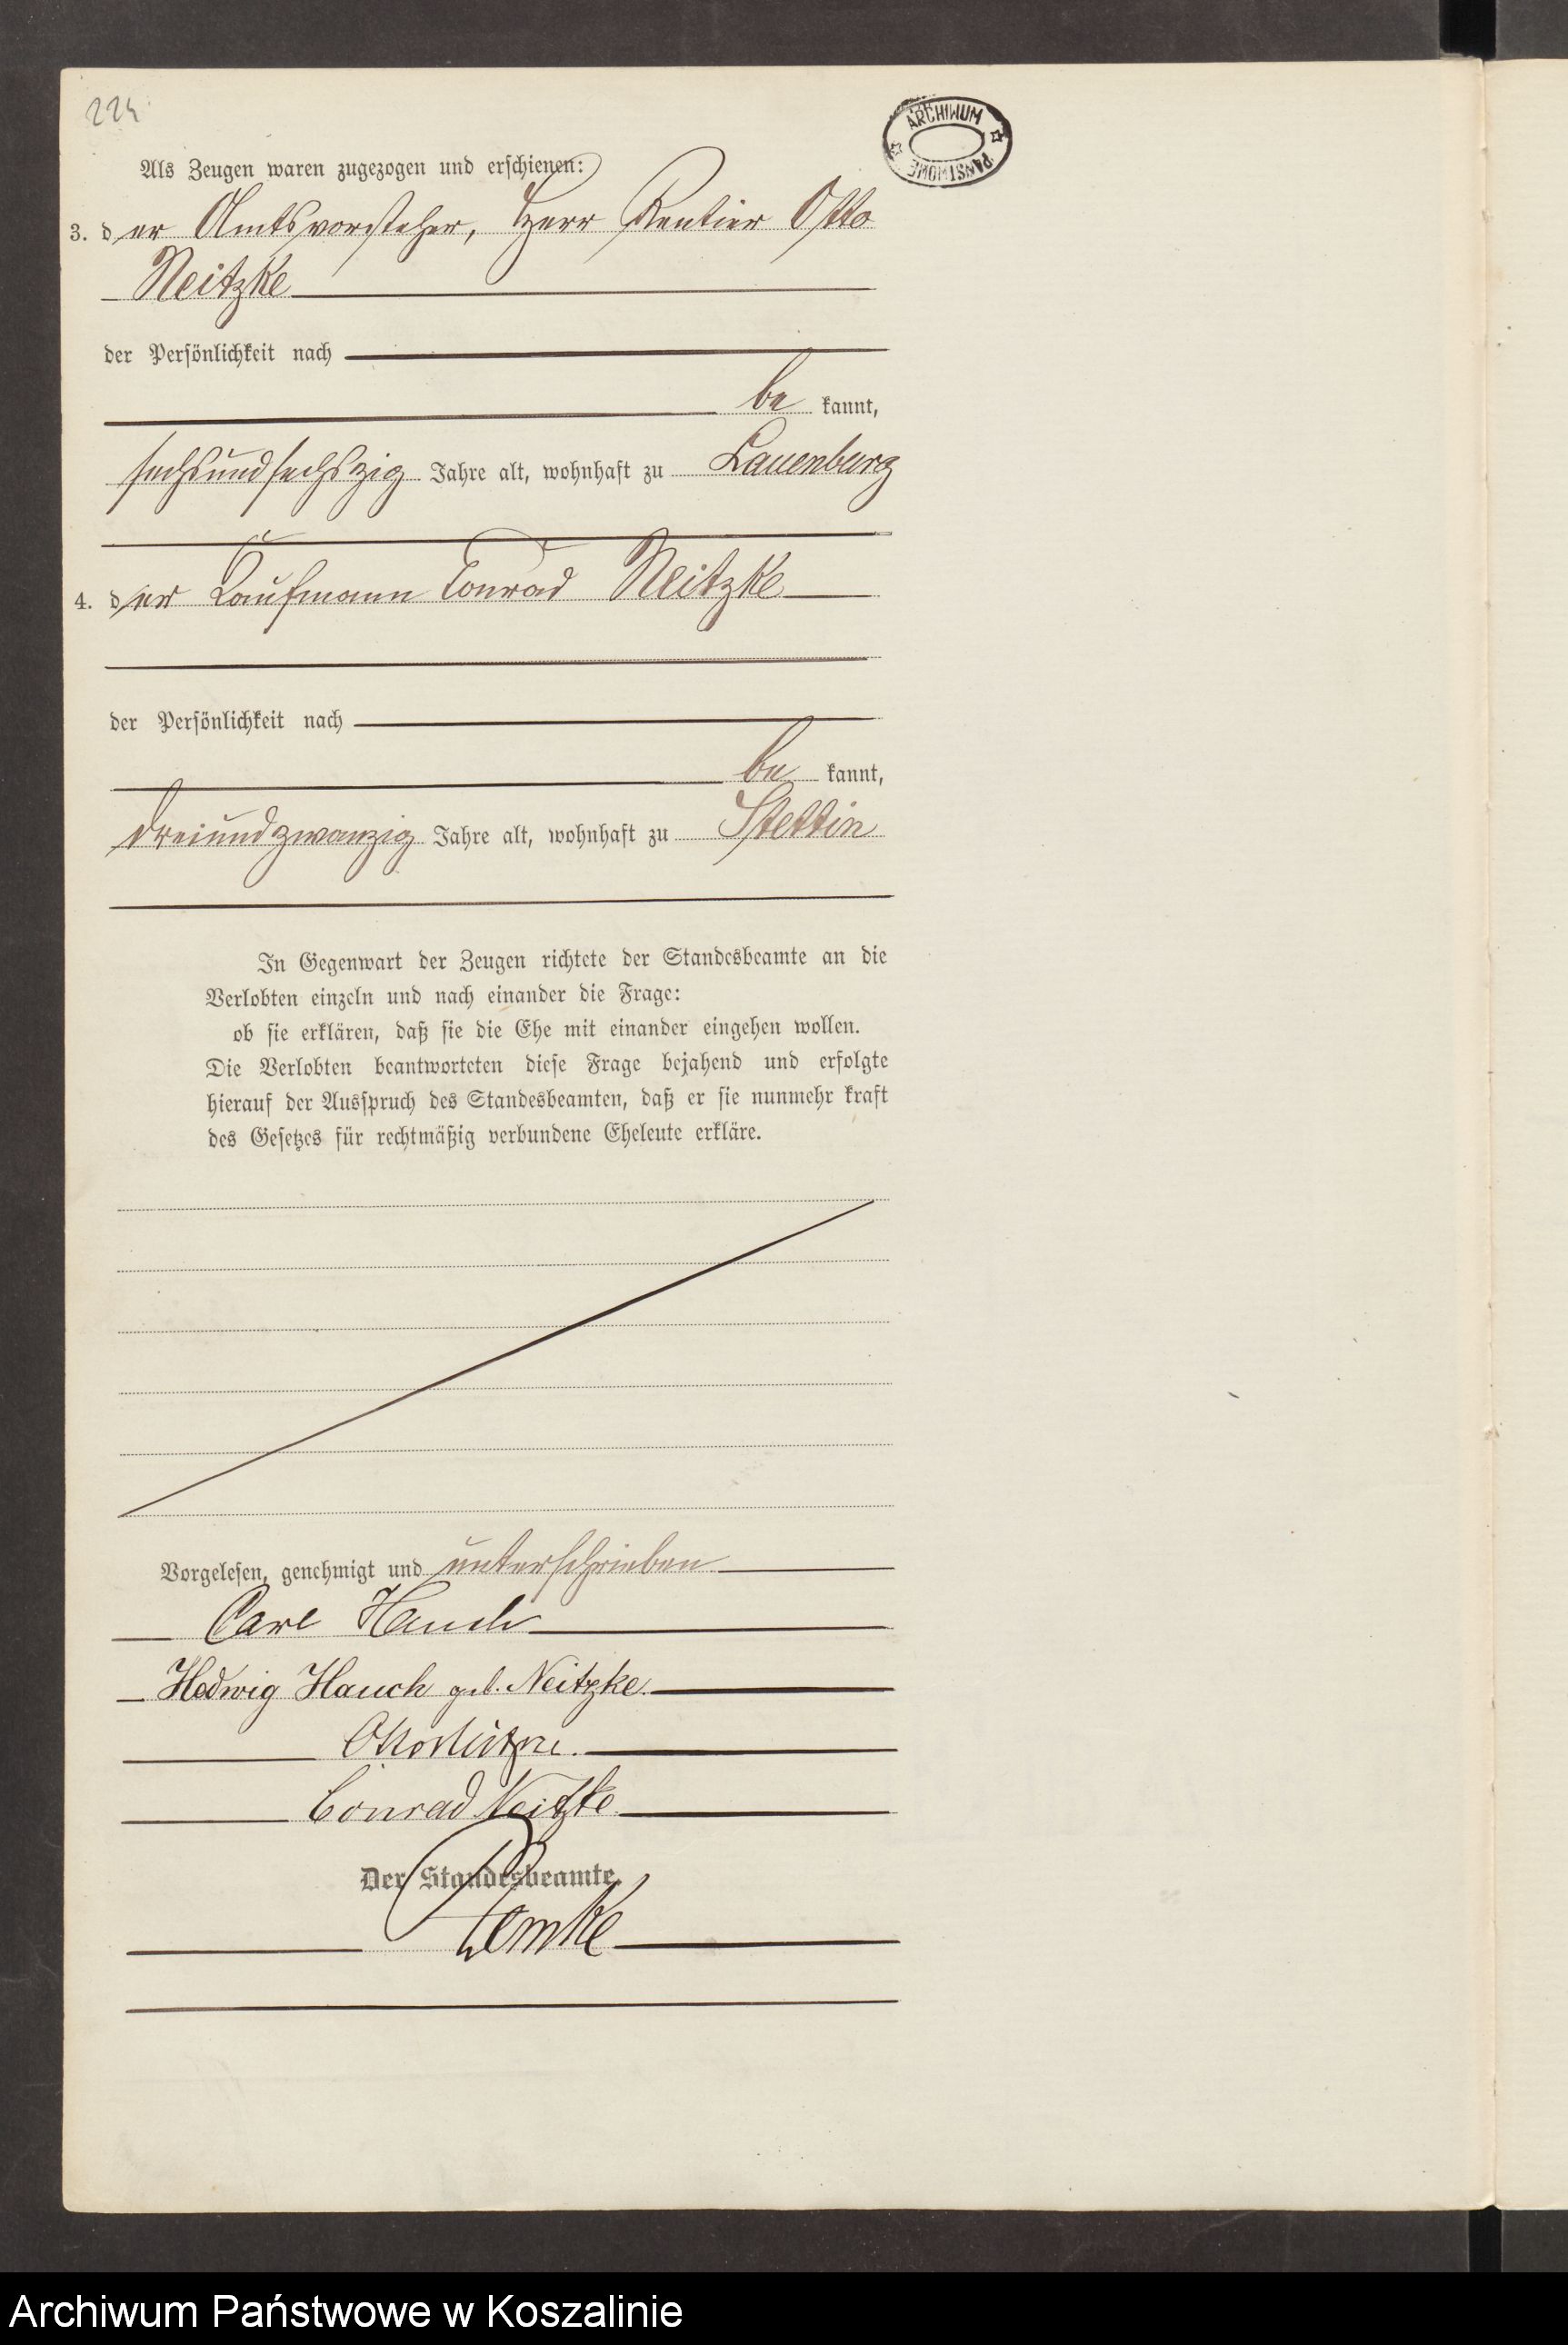 224
ARCHIWUM PAŃSTWOWE
Als Zeugen waren zugezogen und erschienen:
3. der Amtsvorsteher, Herr Rentier Otto
Neitzke
der Persönlichkeit nach
be kannt,
sechsundsechszig Jahre alt, wohnhaft zu Lauenburg
4. der Kaufmann Conrad Neitzke
der Persönlichkeit nach
be kannt,
dreiundzwanzig Jahre alt, wohnhaft zu Stettin
In Gegenwart der Zeugen richtete der Standesbeamte an die
Verlobten einzeln und nach einander die Frage:
ob sie erklären, daß sie die Ehe mit einander eingehen wollen.
Die Verlobten beantworteten diese Frage bejahend und erfolgte
hierauf der Ausspruch des Standesbeamten, daß er sie nunmehr kraft
des Gesetzes für rechtmäßig verbundene Eheleute erkläre.
Vorgelesen, genehmigt und unterschrieben
Carl Hauch
Hedwig Hauch geb. Neitzke.
Otto Neitzke.
Conrad Neitzke
Der Standesbeamte.
Lemke
Archiwum Państwowe w Koszalinie